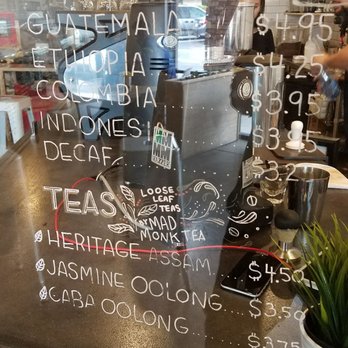 GUATEMALA $4.95
ETHIOPIA $4.25
COLOMBIA $3.95
INDONESIA $3.95
DECAF
TEAS
LOOSE
LEAF
TEAS
BY MAD
MONK TEA
HERITAGE ASSAM $4.50
JASMINE OOLONG $3.50
GABA OOLONG $3.75